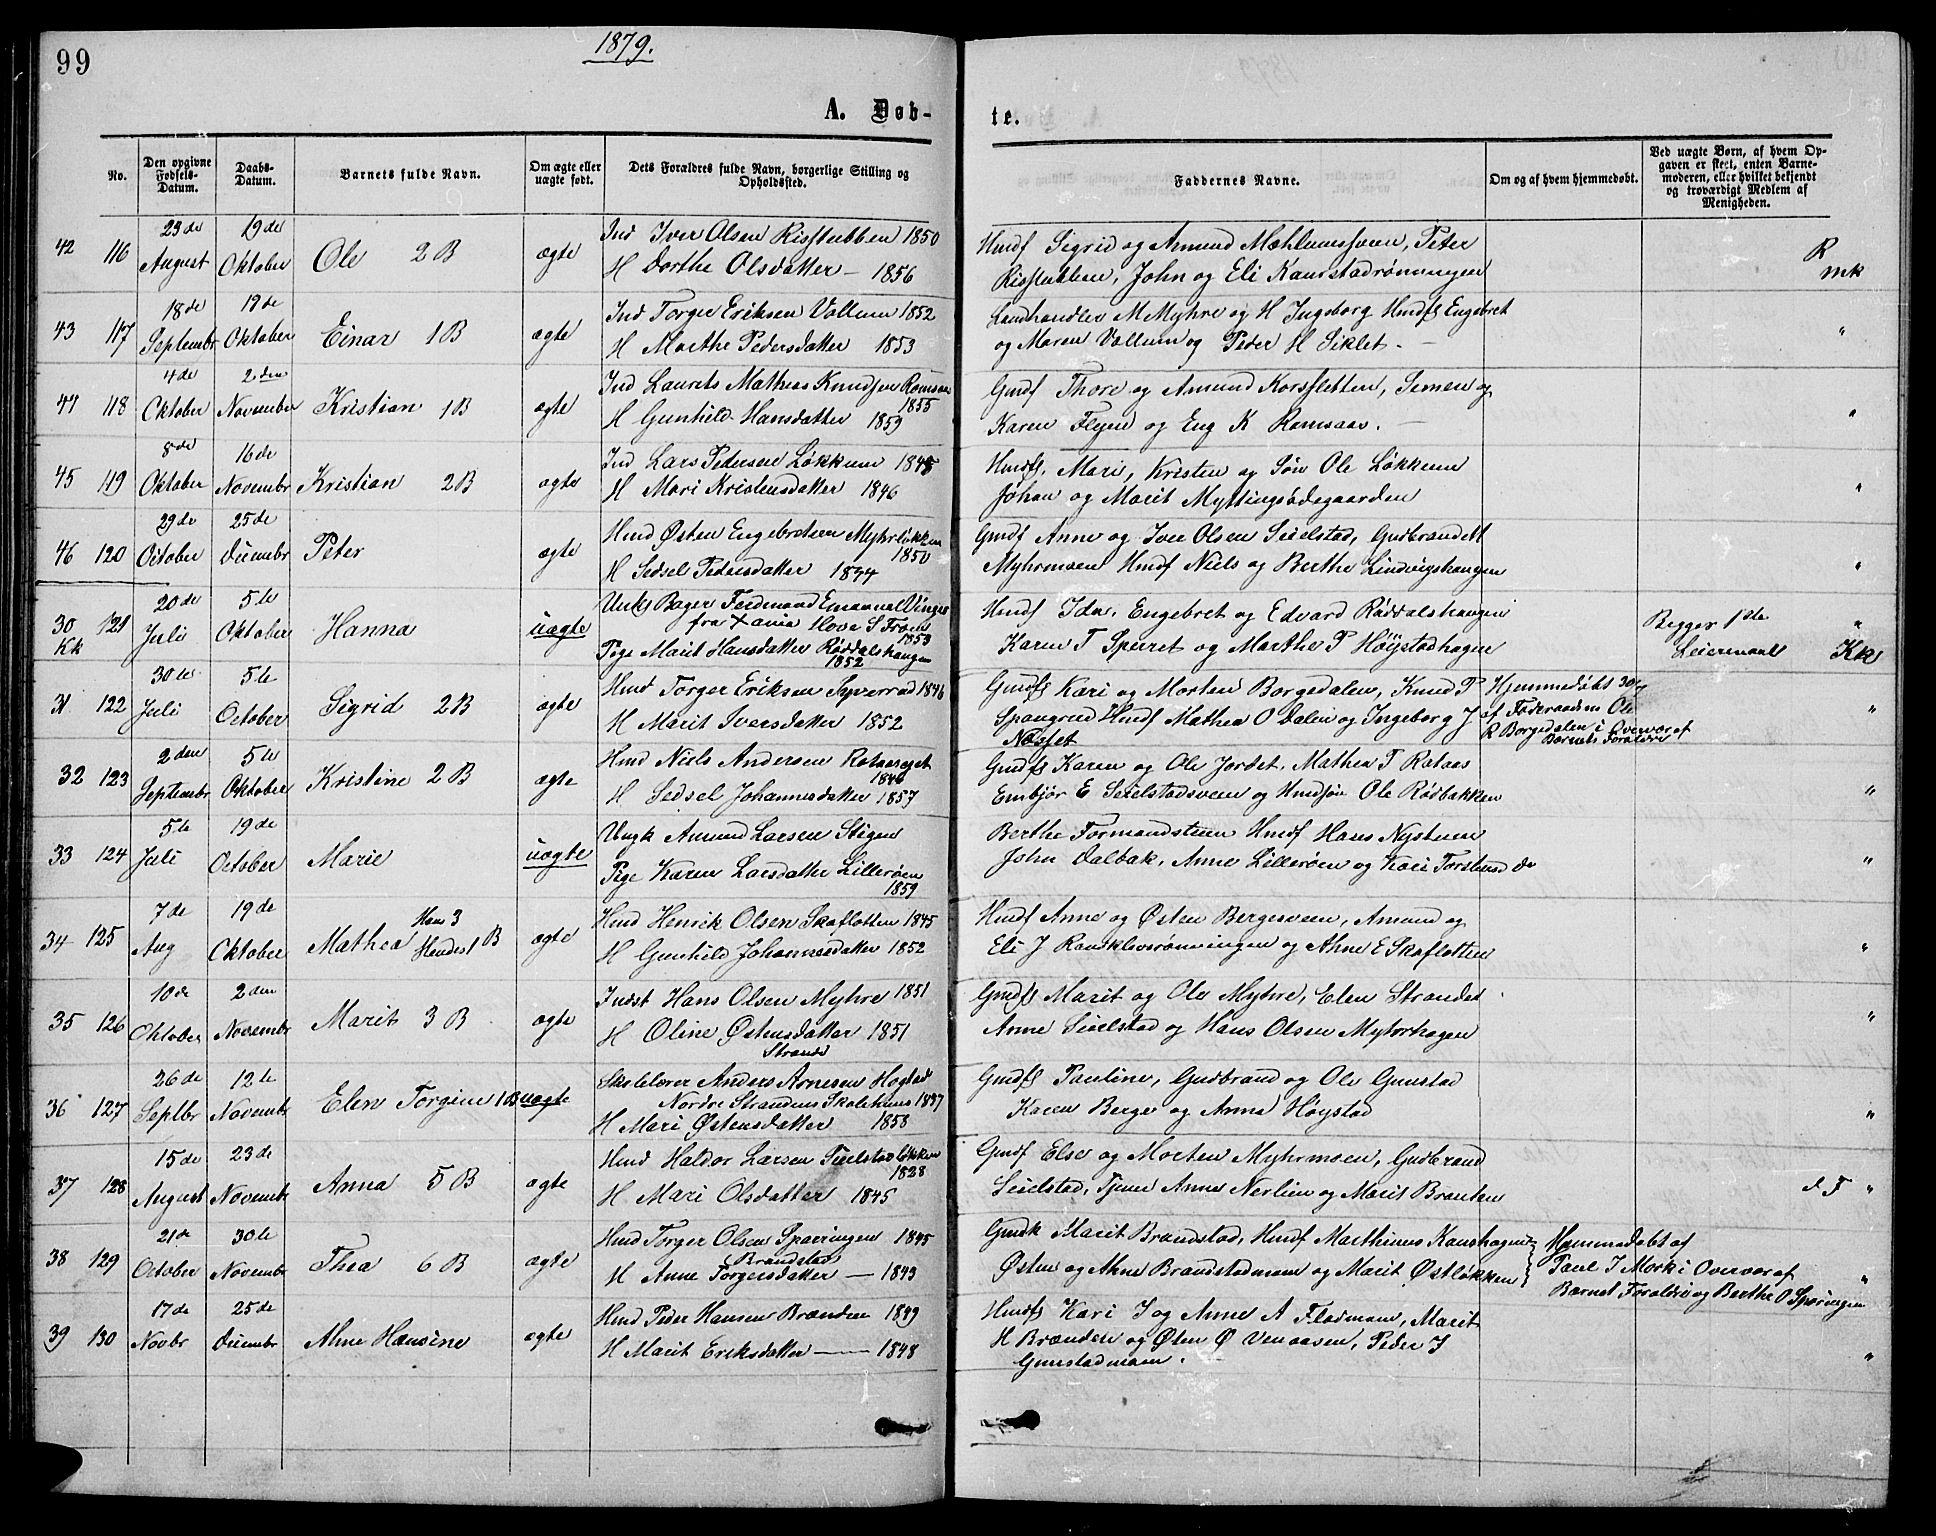 99
1879.
A. Døb-
te.
No.
Den opgivne Fødsels-Datum.
Daabs-Datum.
Barnets fulde Navn.
Om ægte eller uægte født.
Dets Forældres fulde Navn, borgerlige Stilling og Opholdssted.
Faddernes Navne.
Om og af hvem hjemmedøbt.
Ved uægte Børn, af hvem Opgaven er skeet, enten Barnemoderen, eller hvilket bekjendt og troværdigt Medlem af Menigheden.
42 116 23de August 19de Oktober Ole 2 B ægte
Ind Iver Olsen Risstubben 1850
H Dorthe Olsdatter – 1856
Hmdf Sigrid og Amund Mæhlumsveen, Peter
Risstubben, John og Eli Kanrstadrønningen
R
mk
43 117 18de Septembr 19de Oktober Einar 1 B ægte
Ind Torger Eriksen Vollum 1852
H Marthe Pedersdatter 1853
Landhandler M Myhre og H Ingeborg Hmdfs Engebret
og Maren Vollum og Peder H Siklet. –
"
44 118 4de Oktober 2den November Kristian 1 B ægte
Ind Laurits Mathias Knudsen Romsaas 1855
H Gunhild Hansdatter 1859
Gmdf Thore og Amund Korsfletten, Simen og
Karen Flyen og Eng K Ramsaas. –
"
45 119 8de Oktober 16de Novembr Kristian 2 B ægte
Ind Lars Pedersen Løkkum 1845
H Mari Kristensdatter 1846
Hmdfs. Mari, Kristen og Søn Ole Løkkum
Johan og Marit Myttingsødegaarden
"
46 120 29de October 25de Duembr Peter ægte
Hmd Østen Engebretsen Myhrløkken 1850
H Sedsel Pedersdatter 1834
Gmdf Anne og Iver Olsen Seielstad, Gudbrand
Myhrmoen Hmdf Niels og Berthe Lindvigshaugen
"
30 Kk 121 20de Juli 5te Oktober Hanna uægte
Ungk Bager Ferdinand Emanual Vinger
fra Hove S Fron 1853
Pige Marit Hansdatter Røddalshaugen 1852
Hmdf Ida, Engebret og Edvard Røddalshaugen
Karen T Sperret og Marthe P Høystadhagen
Begges 1ste
Leiermaal
"
Kk
31 122 30te Juli 5te October Sigrid 2 B ægte
Hmd Torger Eriksen Syverrud 1846
H Marit Iversdatter 1852
Gmdfs Kari og Morten Borgedalen, Knud P
Spangrud Hmdf Mathea O Dalen og Ingeborg J
Næsset
Hjemmedøbt 30/7
af Føderaadsm Ole
R Borgedalen i Overvær af
Barnets Forældre
"
32 123 2den Septembr 5te Oktober Kristine 2 B ægte
Hmd Niels Andersen Rataaseget 1846
H Sedsel Johannesdatter 1857
Gmdfs Karen og Ole Jordet, Mathea T Rataas
Embjør E Seielstadsveen og Hmdsøn Ole Rødbakken
"
33 124 5te Juli 19de October Marie uægte
Ungk Amund Larsen Stigen
Pige Karen Larsdatter Lillerøen 1859
Berthe Formandsteen Hmdf Hans Nystuen
John Dalbak, Anne Lillerøen og Kari Torstensd do
"
34 125 7de Aug 19de Oktober Mathea Hans 3 Hendes 1 B ægte
Hmd Henrik Olsen Skaflotten 1845
H Gunhild Johannesdatter 1852
Hmdf Anne og Østen Bergesveen, Amund og
Eli J Rankleverønningen og Ahne E Skaflotten
"
35 126 10de Oktober 2den Novembr Marit 3 B ægte
Indst Hans Olsen Myhre 1851
H Oline Østensdatter 1851
Strande
Gmdfs Marit og Ole Myhre, Elen Strandes
Anne Seielstad og Hans Olsen Myhrhagen
"
36 127 26de Septbr 12te Novembr Elen Torgine 1 B uægte
Skolelærer Anders Arnesen Hogstad
Nordre Strandens Skolehuus 1837
H Mari Østensdatter 1858
Gmdfs Pauline, Gudbrand og Ole Gunstad
Karen Berge og Anna Høystad
"
37 128 15de August 23de Novembr Anna 5 B ægte
Hmd Haldor Larsen Seielstadløkken 1828
H Mari Olsdatter 1845
Gmdf Else og Morten Myhrmoen, Gudbrand
Seielstad, Tjener Anne Nerlien og Marit Brænden
d F "
38 129 21de October 30te Novembr Thea 6 B ægte
Hmd Torger Olsen Spærringen 1845
Brandstad
H Anne Torgersdatter – 1843
Gmdk Marit Brandstad, Hmdf Marthinus Kanshagen
Østen og Ahne Brandstadmoen og Marit Østløkken
Hjemmedøbt af
Paul J Mork i Overvær af
Barnet Forældre og Berthe O Spærringen
"
39 130 17de Novbr 25de Duembr Ahne Hansine ægte
Hmd Peder Hansen Brænden 1849
H Marit Eriksdatter – 1848
Hmdfs Kari J og Anne A Flodmoen, Marit
H Brænden og Østen Ø Venaasen, Peder J
Gunstadmoen.
"